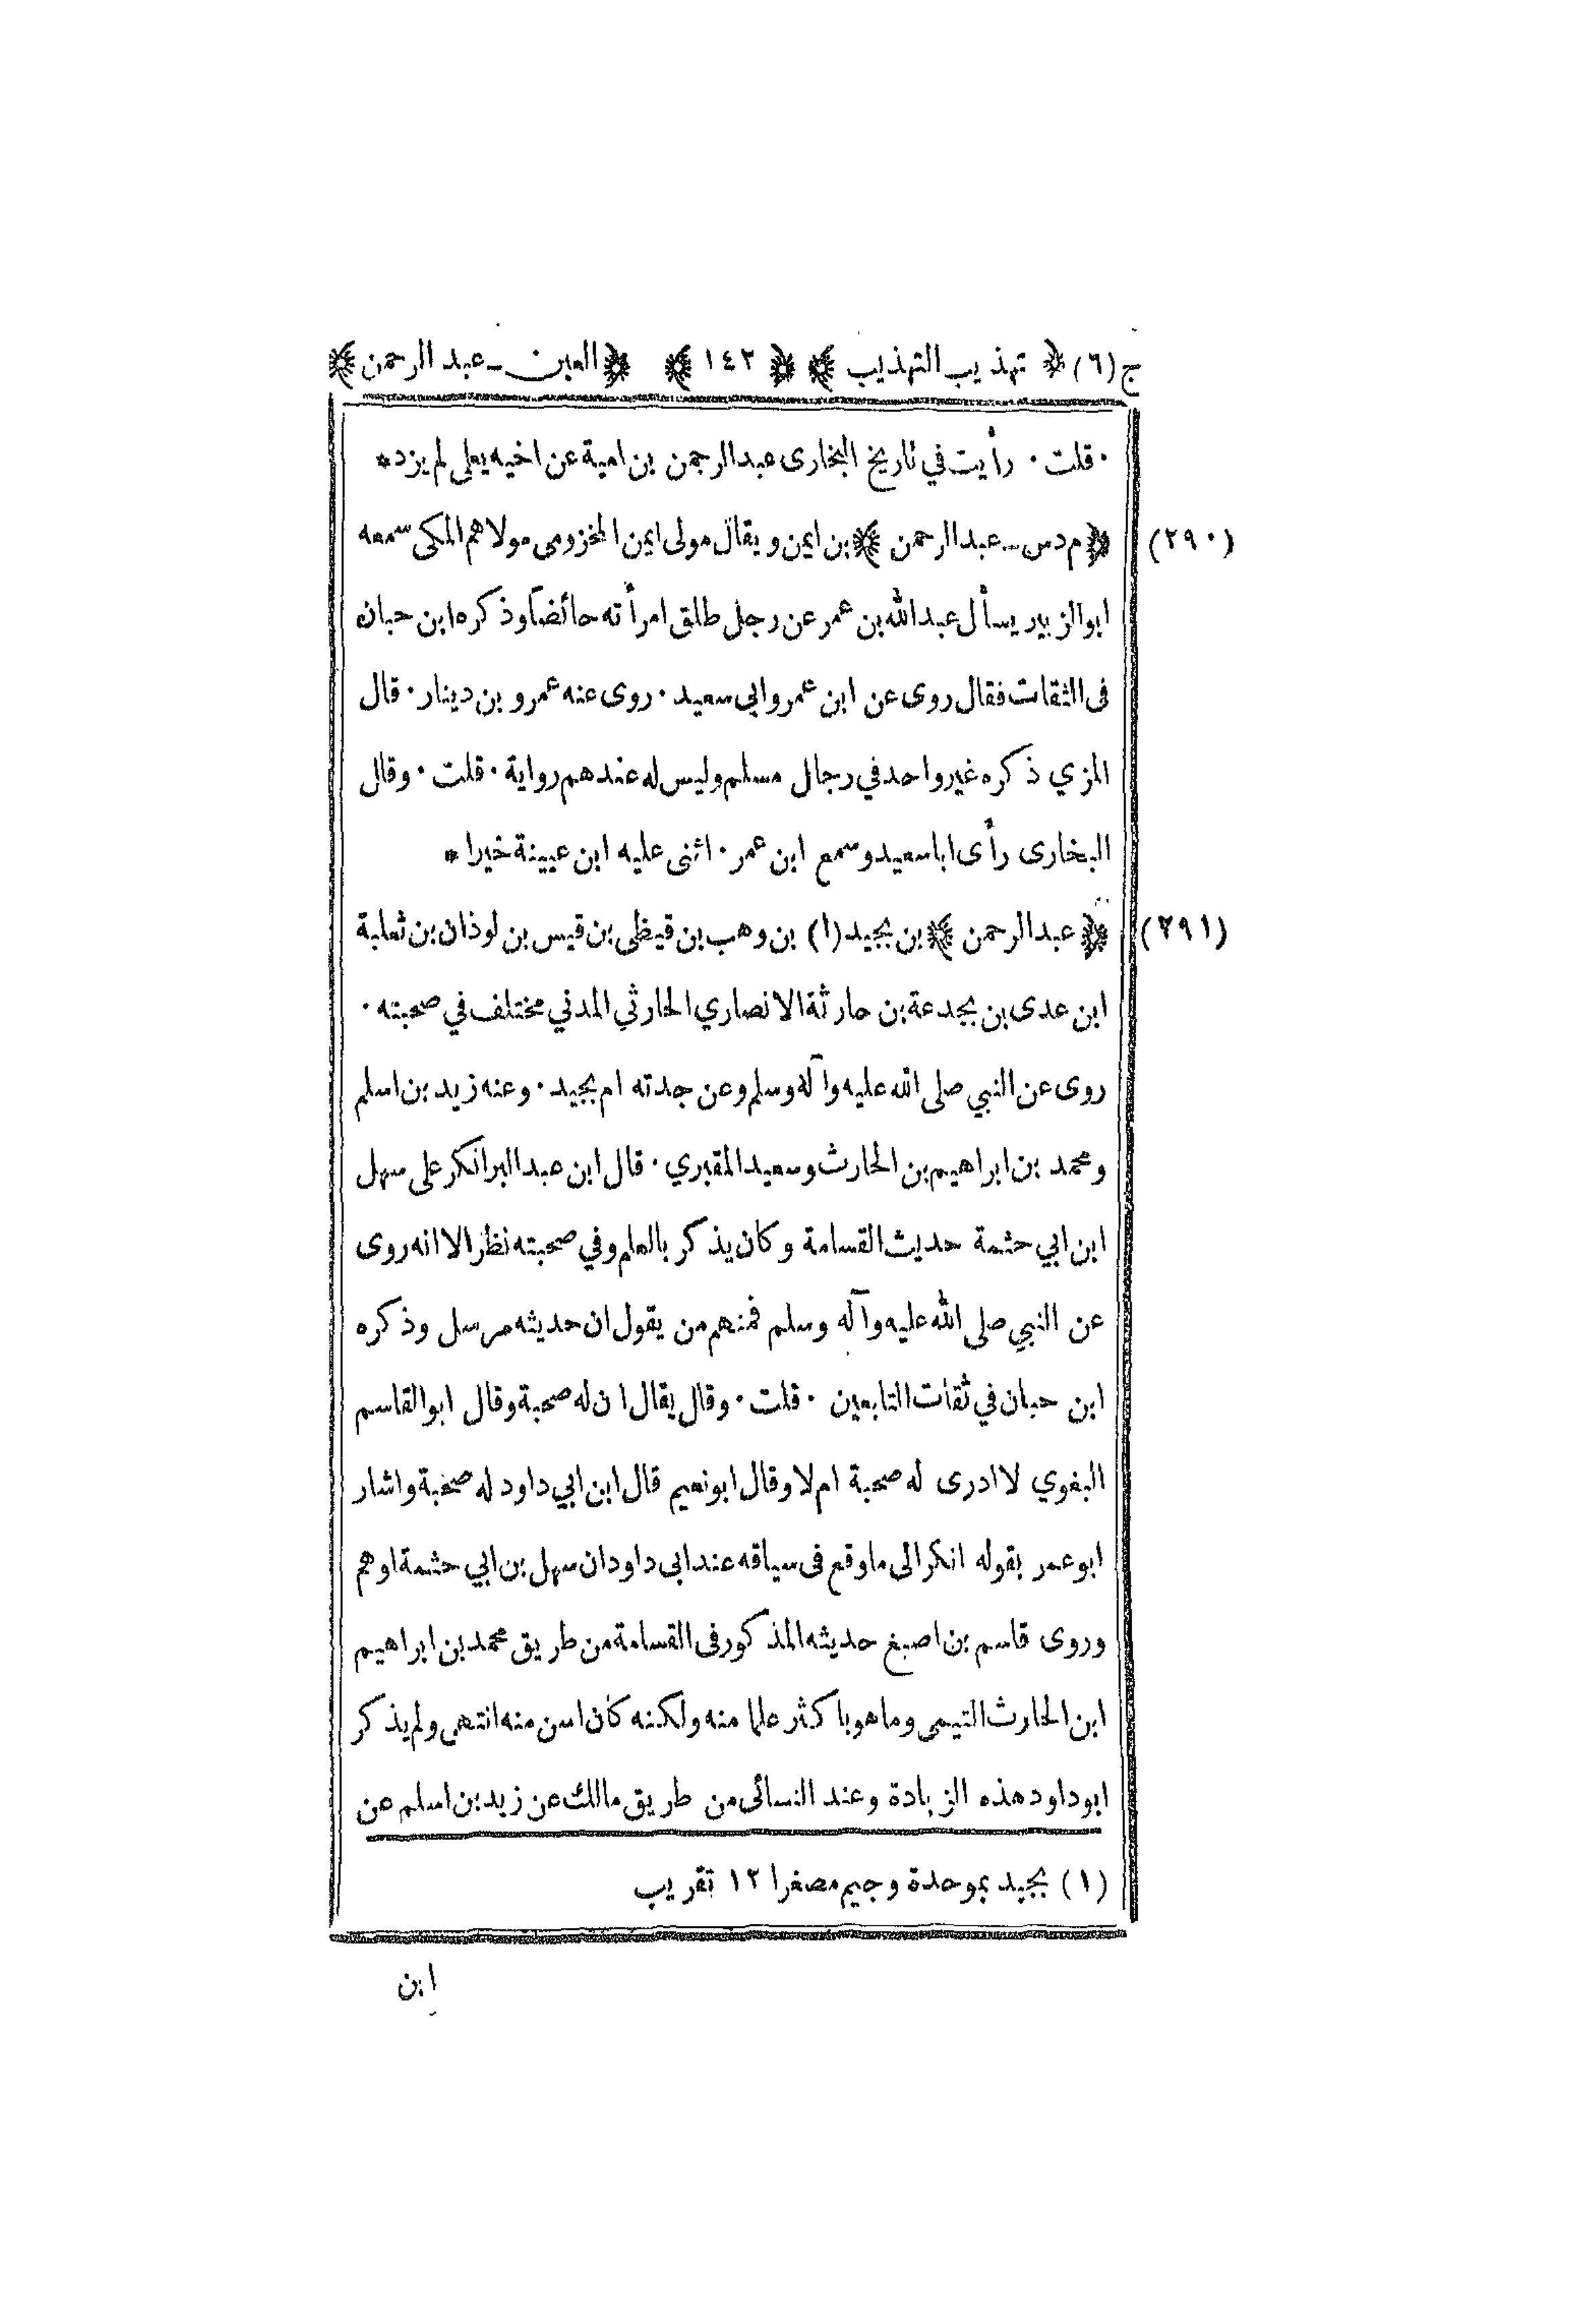 ج (٦) ﴿ تهذيب التهذيب ﴾ ﴿ ١٤٢ ﴾ ﴿ العين ــ عبد الرحمن ﴾
٠ قلت ٠ رأيت في تاريخ البخارى عبد الرحمن بن امية عن اخيه يعلى لم يزد *
(٢٩٠) ﴿ م دس ــ عبد الرحمن ﴾ بن ايمن و يقال مولى ايمن المخزومى مولاهم المكى سمعه
ابو الزبير يسأل عبد الله بن عمر عن رجل طلق امرأته حائضاً وذكره ابن حبان
فى الثقات فقال روى عن ابن عمر وابي سعيد ٠ روى عنه عمرو بن دينار ٠ قال
المزي ذكره غير واحد في رجال مسلم وليس له عندهم رواية ٠ قلت ٠ وقال
البخارى رأى ابا سعيد وسمع ابن عمر ٠ اثنى عليه ابن عيينة خيرا *
(٢٩١) ﴿ عبد الرحمن ﴾ بن بجيد (١) بن وهب بن قيظى بن قيس بن لوذان بن ثعلبة
ابن عدى بن مجدعة بن حارثة الانصاري الحارثي المدني مختلف في صحبته ٠
روى عن النبي صلى الله عليه وآله وسلم وعن جدته ام بجيد ٠ وعنه زيد بن اسلم
ومحمد بن ابراهيم بن الحارث وسعيد المقبري ٠ قال ابن عبد البر انكر على سهل
ابن ابي حثمة حديث القسامة وكان يذكر بالعلم وفي صحبته نظر الا انه روى
عن النبي صلى الله عليه وآله وسلم فمنهم من يقول ان حديثه مرسل وذكره
ابن حبان في ثقات التابعين ٠ قلت ٠ وقال يقال ان له صحبة وقال ابو القاسم
البغوي لا ادرى له صحبة ام لا وقال ابو نعيم قال ابن ابي داود له صحبة واشار
ابو عمر بقوله انكر الى ما وقع فى سياقه عند ابى داود ان سهل بن ابي حثمة اوهم
وروى قاسم بن اصبغ حديثه المذكور فى القسامة من طريق محمد بن ابراهيم
ابن الحارث التيمى وما هو باكثر علما منه ولكنه كان اسن منه انتهى ولم يذكر
ابو داود هذه الزيادة وعند النسائى من طريق مالك عن زيد بن اسلم عن
(١) بجيد بموحدة وجيم مصغرا ١٢ تقريب
ابن